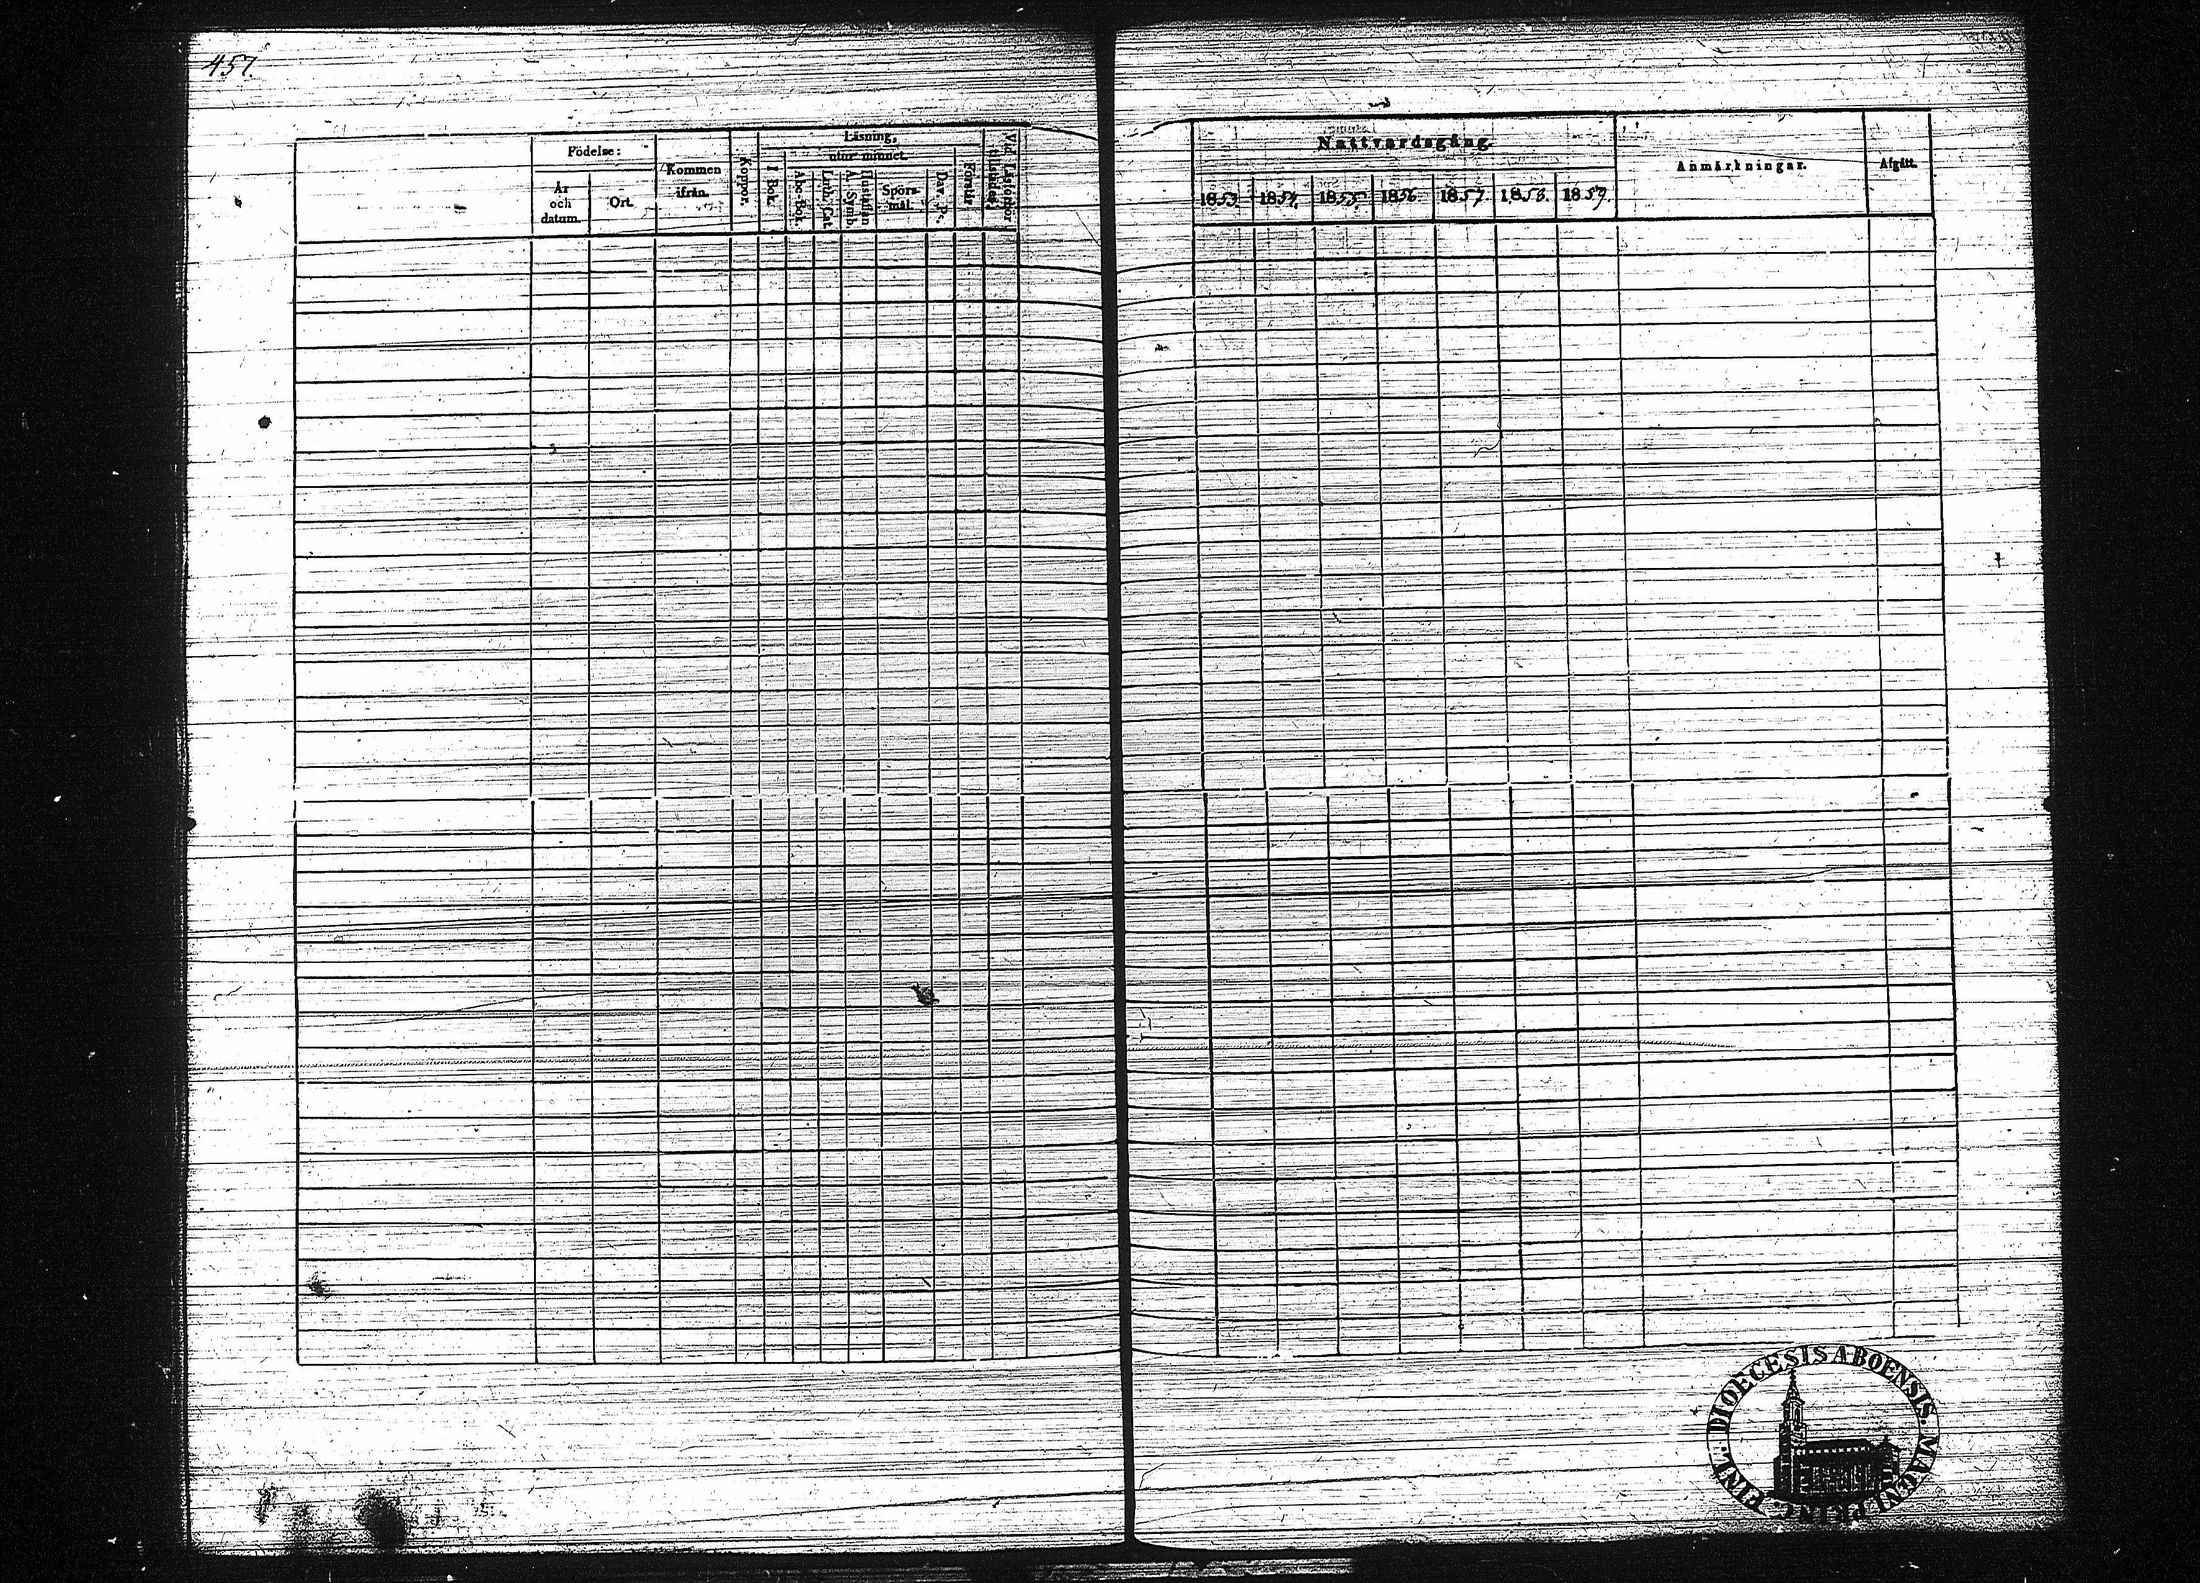 457.
Födelse:
År
och
datum.
Ort.
Kommen
ifrån.
Koppor.
Läsning,
utur minnet.
I Bok.
Abc-Bok.
Luth. Cat.
Hustaflan
A. Symb.
Spörs-
mål.
Dav. Ps.
Förstår
Vid Läsförhör
tillstädes.
Nattvardsgång.
1853.
1854.
1855.
1856
1857.
1858.
1859.
Anmärkningar.
Afgått.
FINL. DIOECESIS ABOENSIS. MAGNI PRINC.